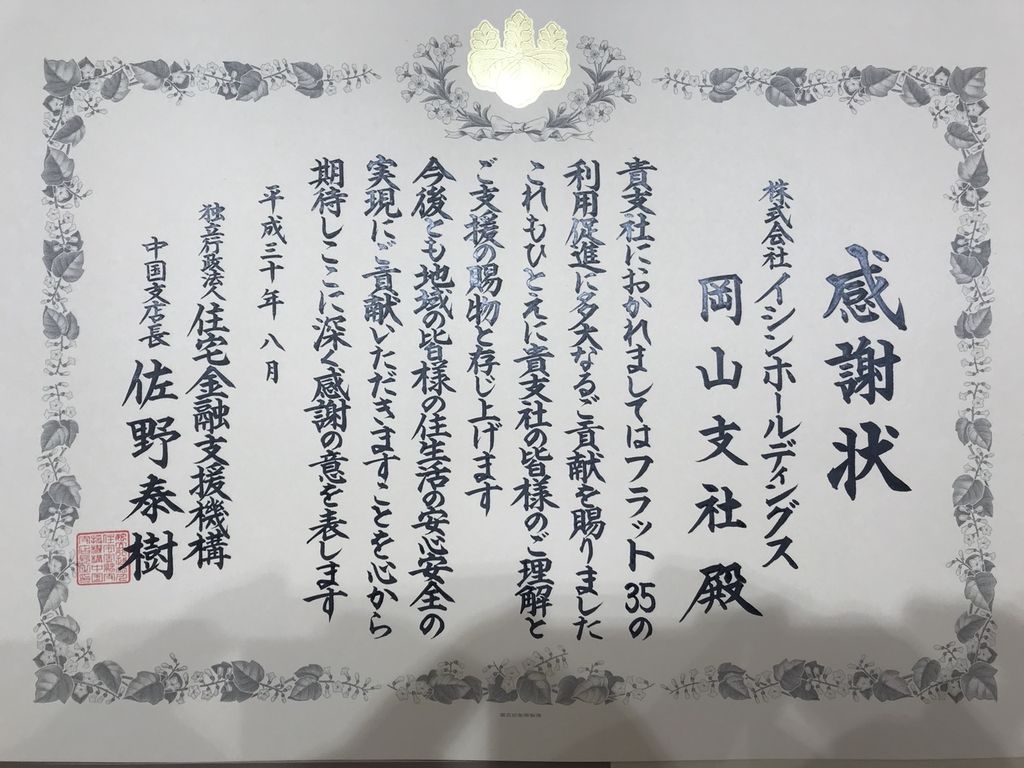 感謝状
株式会社イシンホールディングス
岡山支社殿
貴支社におかれましてはフラット35の
利用促進に多大なるご貢献を賜りました
これもひとえに貴支社の皆様のご理解と
ご支援の賜物と存じ上げます
今後とも地域の皆様の住生活の安心安全の
実現にご貢献いただきますことを心から
期待しここに深く感謝の意を表します
平成三十年八月
独立行政法人住宅金融支援機構
中国支店長佐野泰樹